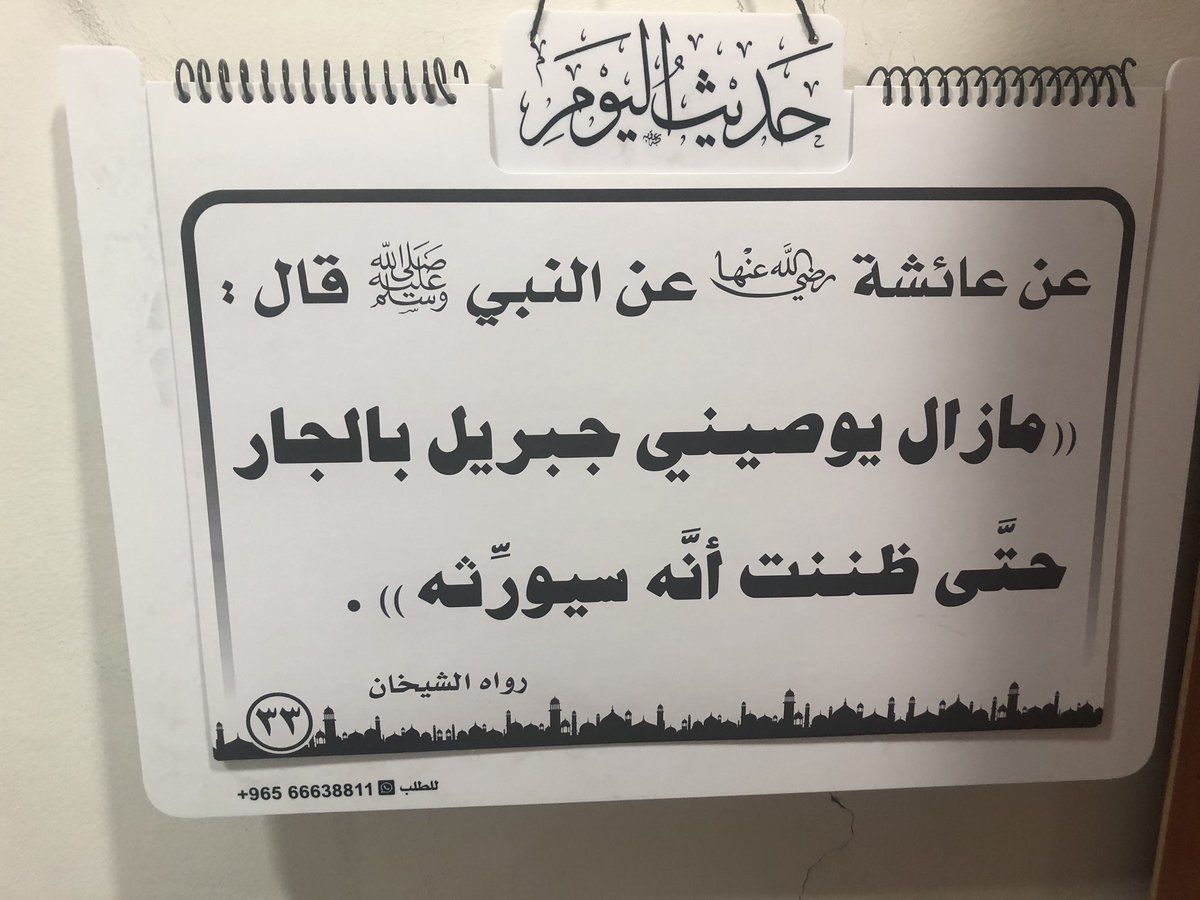 حَديثُ اليَومِ
عن عائشة رضي الله عنها عن النبي صلى الله عليه وسلم قال :
((مازال يوصيني جبريل بالجار
حتَّى ظننت أنَّه سيورِّثه)) .
رواه الشيخان
٣٣
للطلب +965 66638811